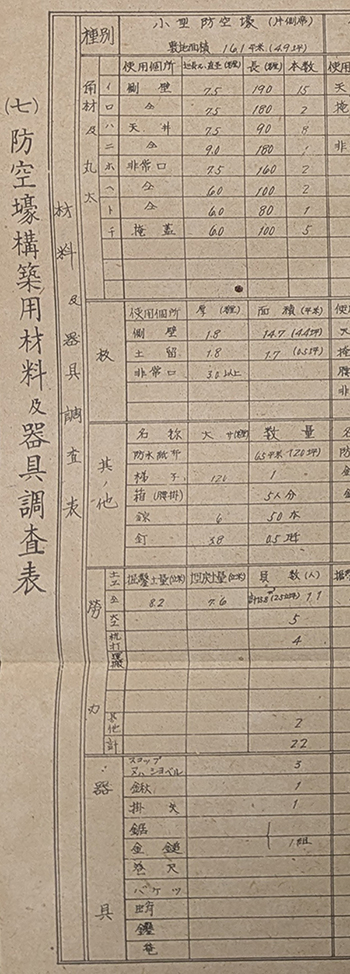 (七)防空壕構築用材料及器具調査表
材料及器具調査表
種別 小型防空壕(片側席)
敷地面積 16.1平米(4.9坪)
角材及丸太 使用個所 長(糎) 本数
イ 側壁 7.5 190 15
ロ 仝 7.5 180 2
ハ 天井 7.5 90 8
ニ 仝 9.0 180
ホ 非常口 7.5 160 2
ヘ 仝 6.0 100 2
ト 仝 6.0 80 1
チ 掩蓋 6.0 100 5
板 使用個所 厚(糎) 面積(平米)
側壁 1.8 14.7(4.4坪)
土留 1.8 1.7(0.5坪)
非常口 3.0以上
其ノ他 名称 大サ(糎) 数量
防水紙 65平米(20坪)
梯子 120 1
箱(腰掛) 5人分
鎹 6 50本
釘 0.5
労力 土工 掘鑿土量(立米) 埋戻土量(立米) 員数(人)
仝 8.2 7.6 11
大工 5
杭打 4
運搬
其他 2
計 22
器具 スコップ 又ハショベル 3
鍬 1
掛矢 1
鋸
金鎚 1組
巻尺
バケツ